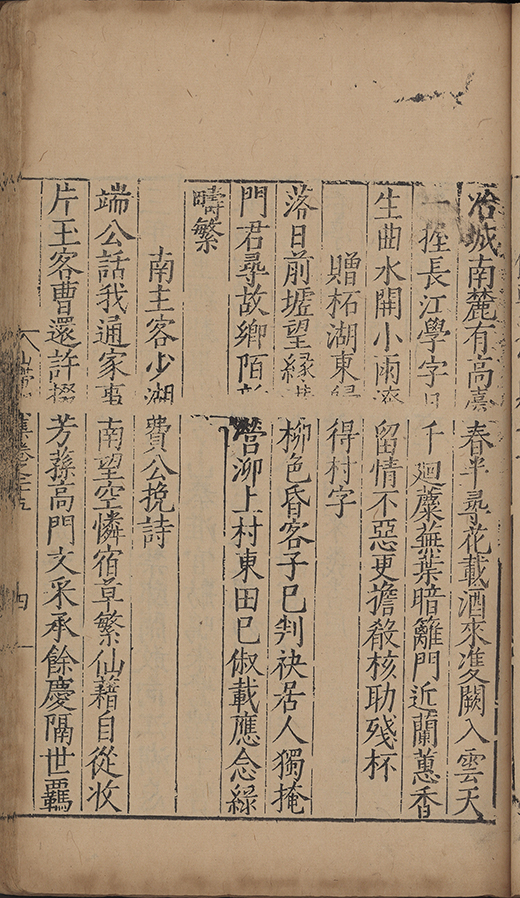 冶城南麓有高臺春半尋花載酒來雙闕入雲天
一握長江學字日千廻蘼蕪葉暗籬門近蘭蕙香
生曲水開小雨留情不惡更擔殽核助殘杯
贈柘湖東歸得村字
落日前墟望緑柳色昏客子已判袂居人獨掩
門君尋故鄉陌營泖上村東田已俶載應念緑
疇繁
南主客少湖費公挽詩
端公話我通家事南望空憐宿草繁仙藉自從收
片玉客曹還許掇芳蓀高門文采承餘慶隔世羈
四